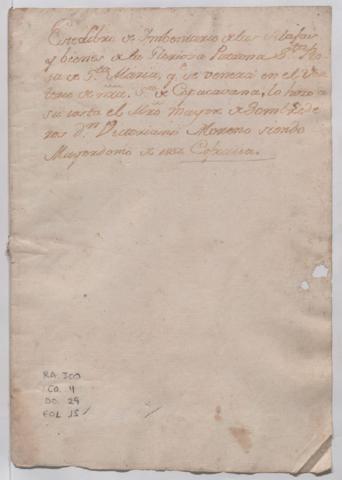 Este Libro de Imbentario de las Alajas
y bienes de la Gloriosa Patrona Sta. Ro
sa de Sta. Maria, q. se venera en el
tero de nra. Sra. de Copacavana, lo hizo a
su costa el Mro. mayor de Sombrede
ros dn. Victoriano Moreno siendo
Mayordomo de Cofradia.
RA. JOO
CA. 4
DO. 29
FOL 15